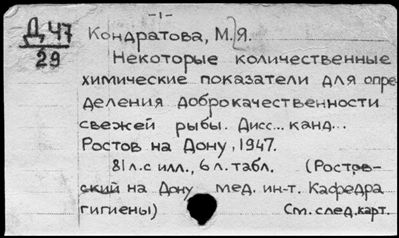 -1-
Д 47
29
Кондратова, М. Я.
Некоторые количественные
химические показатели для опре-
деления доброкачественности
свежей рыбы. Дисс... канд...
Ростов на Дону, 1947.
81 л. с илл., 6 л. табл. (Ростов-
ский на Дону мед. ин-т. Кафедра
гигиены) См. след. карт.